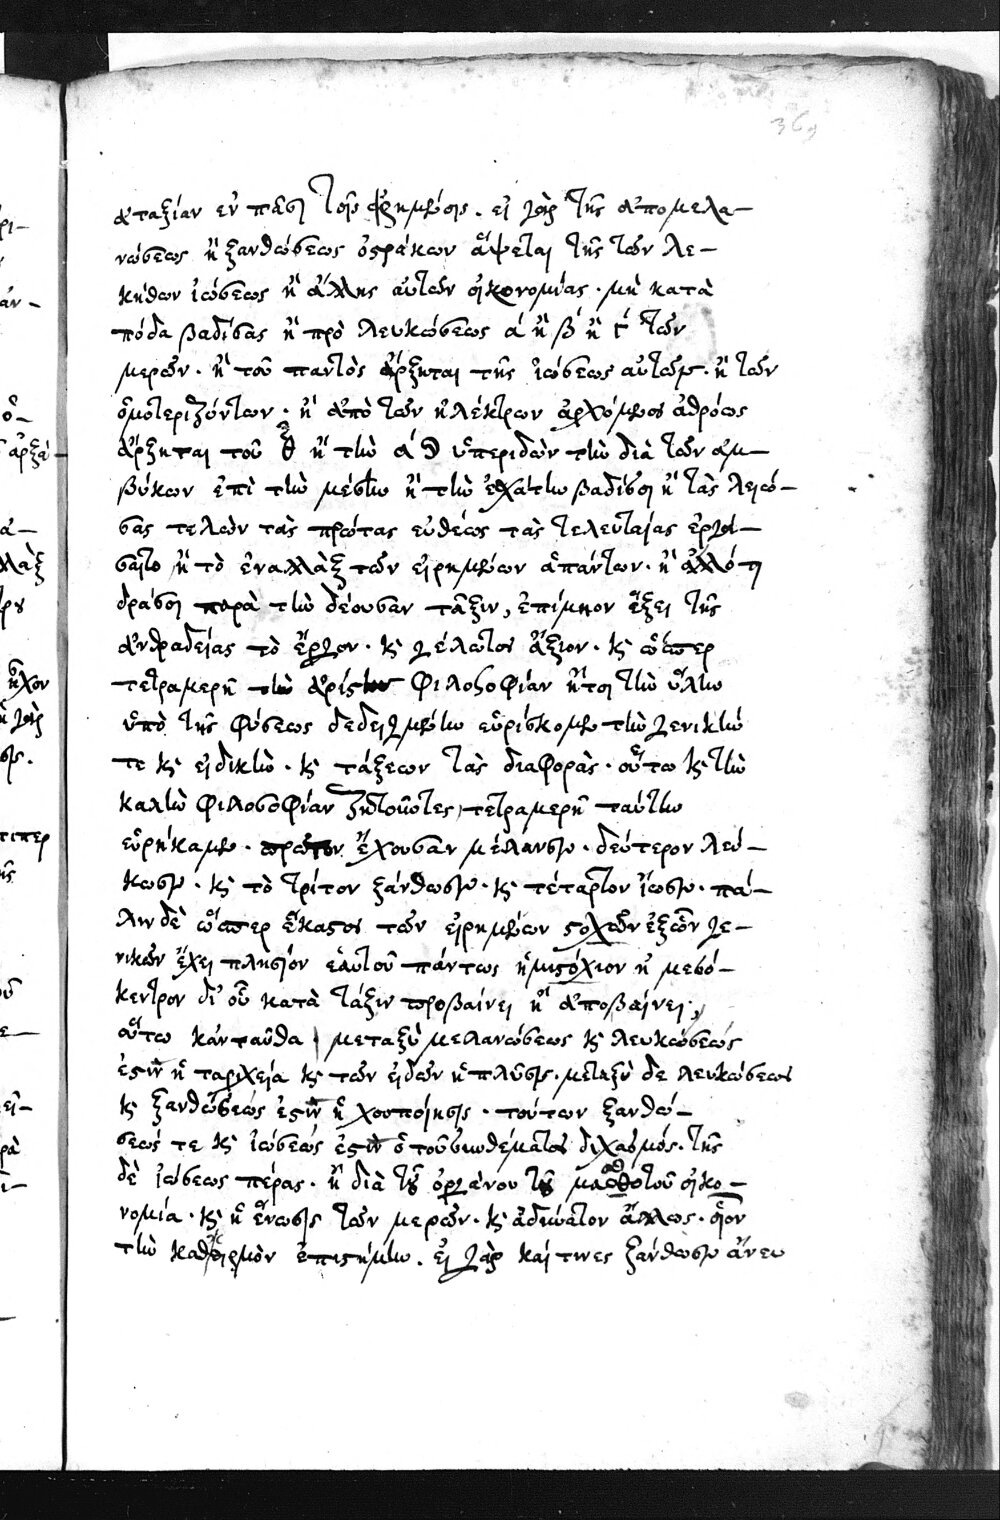 36
ἀταξίαν ἐν πᾶσι τοῖς εἰρημένοις. εἰ γὰρ τῆς ἀπομελα-
νώσεως ἢ ξανθώσεως ὀστράκων ἅψεται τῆς τῶν λε-
κήθων ἰώσεως ἢ ἄλλης αὐτῶν οἰκονομίας. μὴ κατὰ
πόδα βαδίσας ἢ πρὸ λευκώσεως ά ἢ β´ ἢ γ´ τῶν
μερῶν. ἢ τοῦ παντὸς ἄρξηται τῆς ἰώσεως αὐτῶν. ἢ τῶν
ὁμοτεριζόντων. ἢ ἀπὸ τῶν ἠλέκτρων ἀρχόμενος ἀθρόως
ἄρξηται τοῦ ἢ τὴν ά ὑπεριδὼν τὴν διὰ τῶν ἀμ-
βύκων ἐπὶ τὴν μέσην ἢ τὴν ἐσχάτην βαδίσοι ἢ τὰς λειώ-
σας τελῶν τὰς πρώτας εὐθέως τὰς τελευταίας ἐργά-
σαιτο ἢ τὸ ἐναλλὰξ τῶν εἰρημένων ἁπάντων. ἢ ἄλλό τι
δράσοι παρὰ τὴν δέουσαν τάξιν, ἐπίμωον ἕξει τῆς
ἀνθραδείας τὸ ἔργον. κς γέλωτος ἄξιον. κς ὥσπερ
τετραμερῆ τὴν ἀρίστην φιλοσοφίαν ἤτοι τὴν ὕλην
ὑπὸ τῆς φύσεως δεδειγμένην εὑρίσκομεν τὴν γενικήν
τε κς εἰδικὴν. κς τάξεων τὰς διαφοράς. οὕτω κς τὴν
καλὴν φιλοσοφίαν ζητοῦντες, τετραμερῆ ταύτην
εὑρήκαμεν. πρῶτον ἔχουσαν μέλανσιν. δεύτερον λεύ-
κωσιν. κς τὸ τρίτον ξάνθωσιν. κς τέταρτον ἴωσιν. πά-
λιν δὲ ὥσπερ ἕκαστος τῶν εἰρημένων στοχῶν ἐξ ὧν γε-
νικῶν ἔχει πλησίον ἑαυτοῦ πάντως ἡμιστόχιον ἢ μεσό-
κεντρον δι' οὗ κατὰ τάξιν προβαίνει ἢ ἀποβαίνει,
οὕτω κἀνταῦθα μεταξὺ μελανώσεως κς λευκώσεώς
ἐστιν ἡ ταριχεία κς τῶν εἰδῶν ἡ πλύσις. μεταξὺ δὲ λευκώσεως
κς ξανθώσεώς ἐστιν ἡ χουποίησις. τούτων ξανθώ-
σεώς τε κς ἰώσεώς ἐστιν ὁ τοῦ συνθέματος διχασμός. τῆς
δὲ ἰώσεως πέρας. ἡ διὰ τοῦ ὀργάνου τοῦ μασθωτοῦ οἰκο-
νομία. κς ἡ ἕνωσις τῶν μερῶν. κς ἀδύνατον ἄλλως. οἷον
τὴν καθειρμὸν ἐπιστήμην. εἰ γὰρ καί τινες ξάνθωσιν ἄνευ